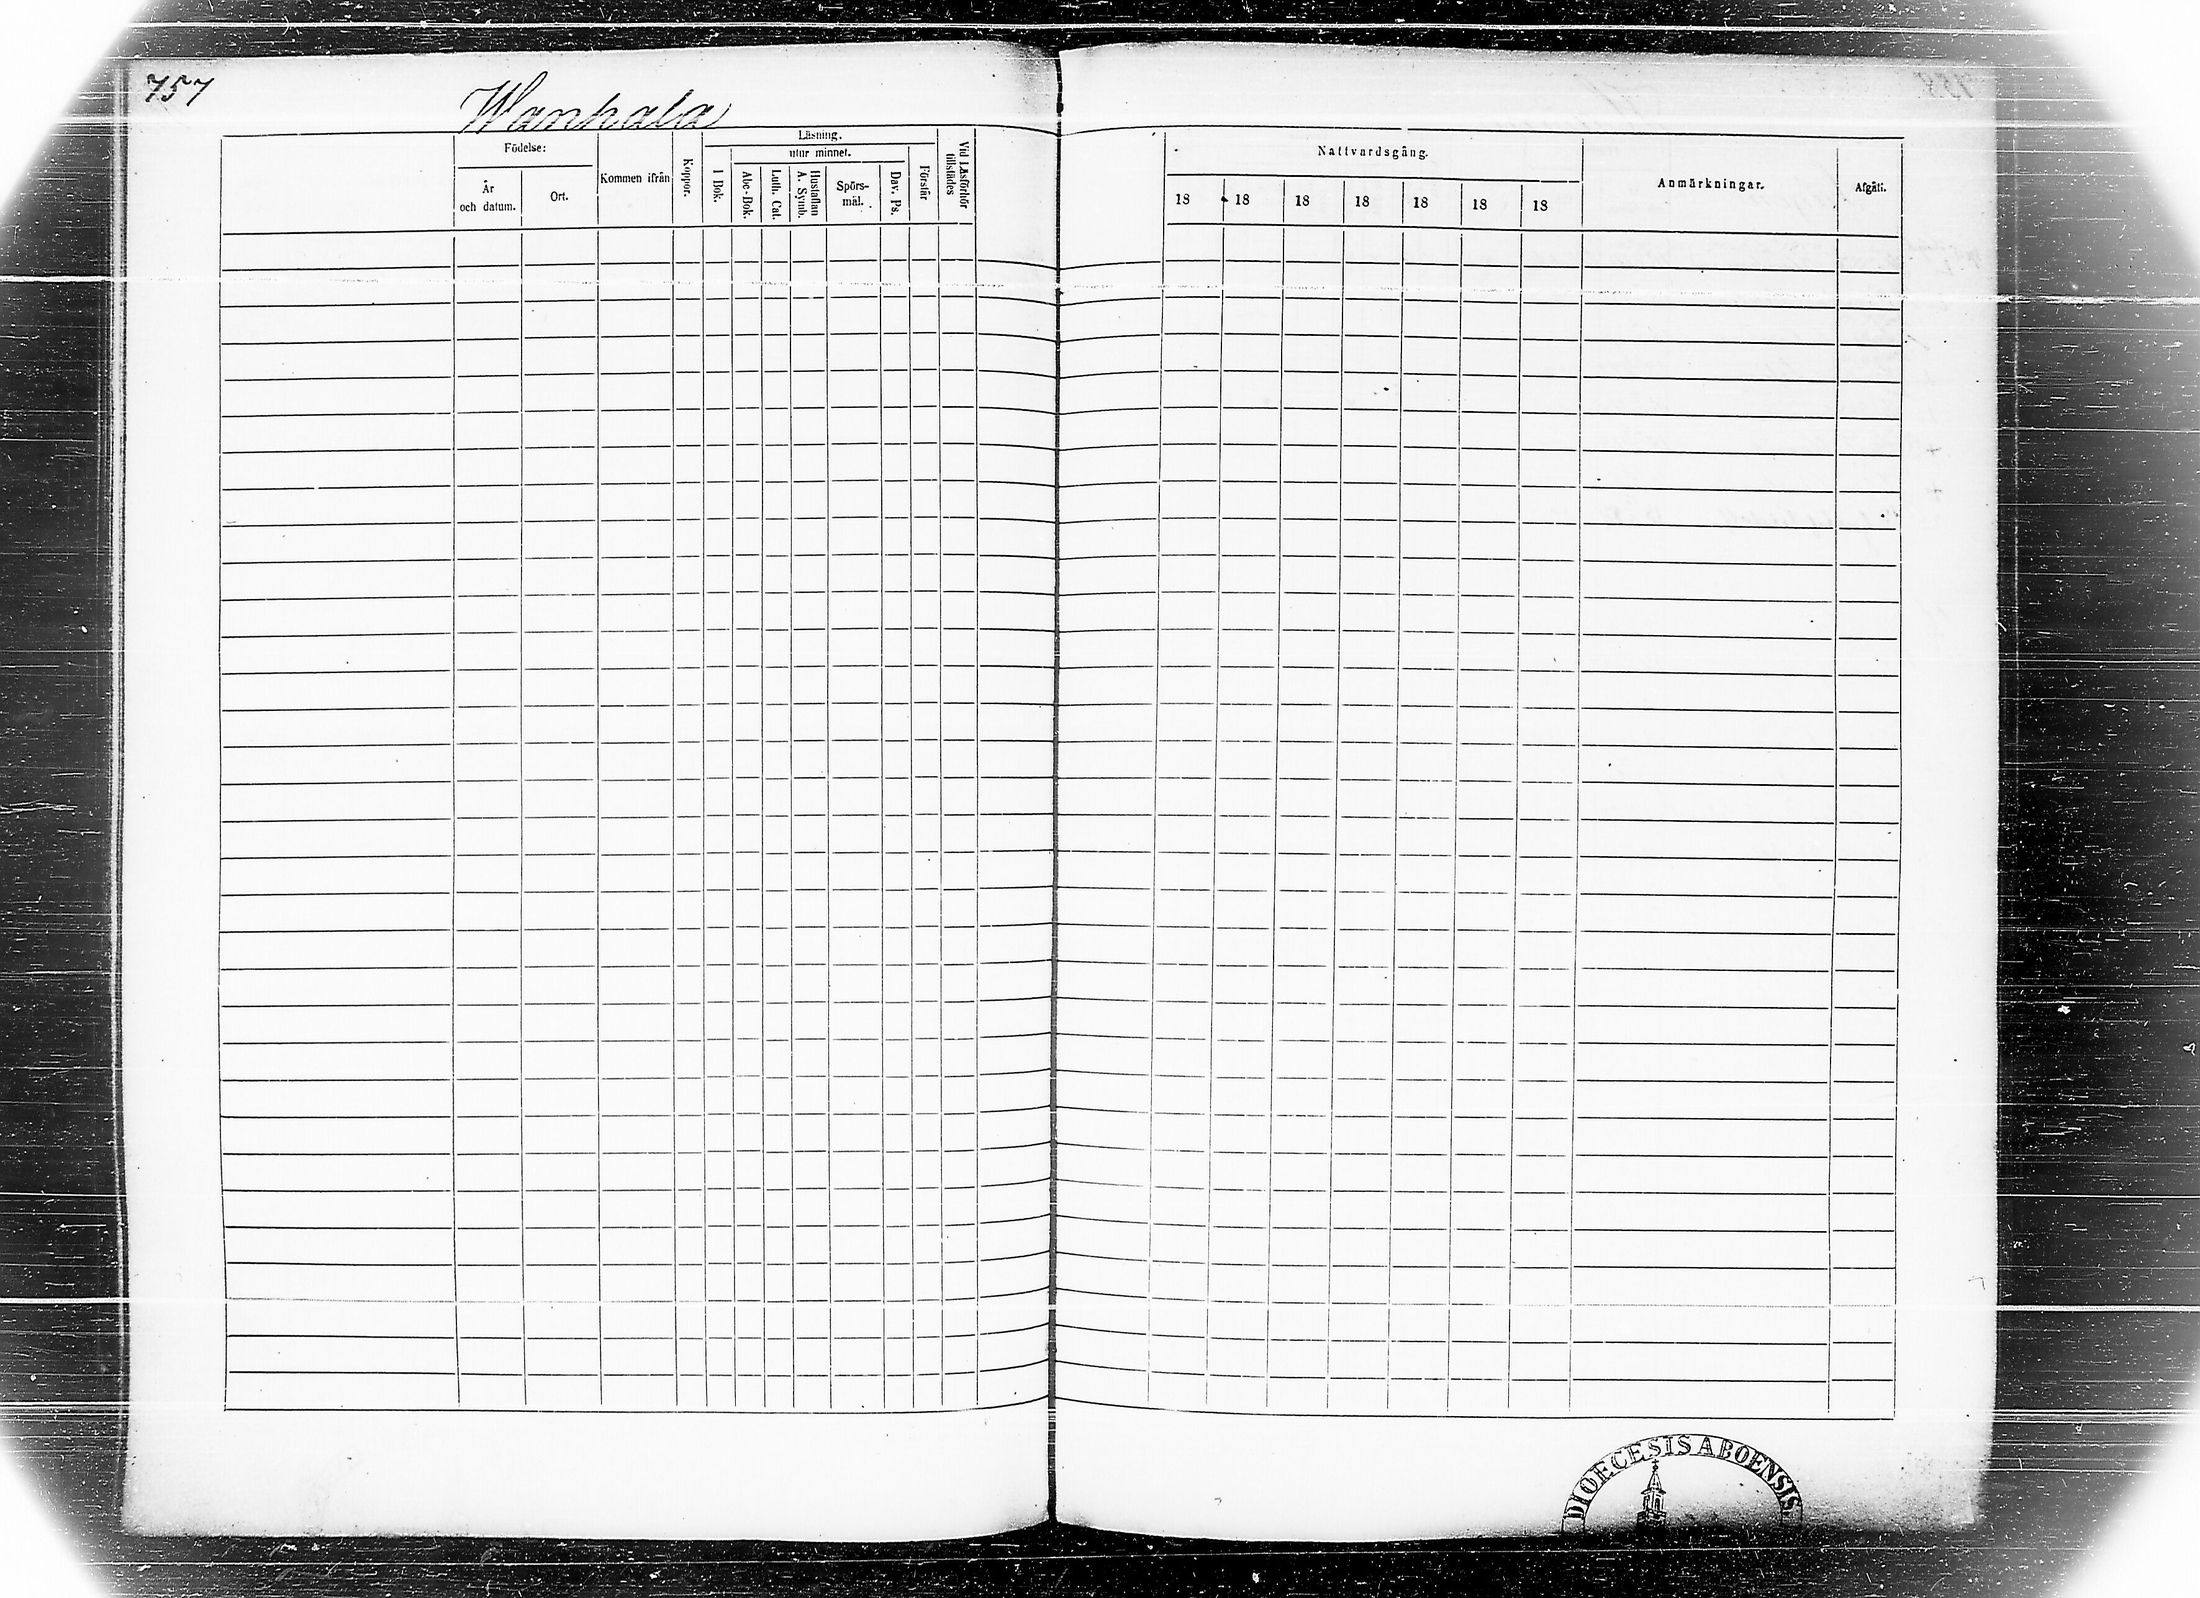 757
Wanhala
Födelse:
År
och datum.
Ort.
Kommen ifrån
Koppor.
Läsning.
I Bok.
utur minnet.
Abc-Bok.
Luth. Cat.
Hustaflan
A. Symb.
Spörs-
mål.
Dav. Ps.
Förstår
Vid Läsförhör
tillstädes
Nattvardsgång.
18 18 18 18 18 18 18
Anmärkningar.
Afgått.
DIOECESIS ABOENSIS